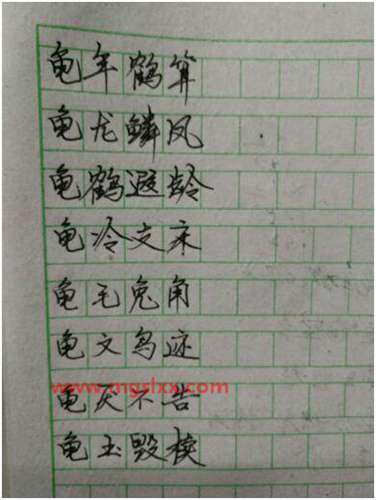 龟年鹤算
龟龙鳞凤
龟鹤遐龄
龟冷支床
龟毛兔角
龟文鸟迹
www.mgslxx.com
龟厌不告
龟玉毁椟